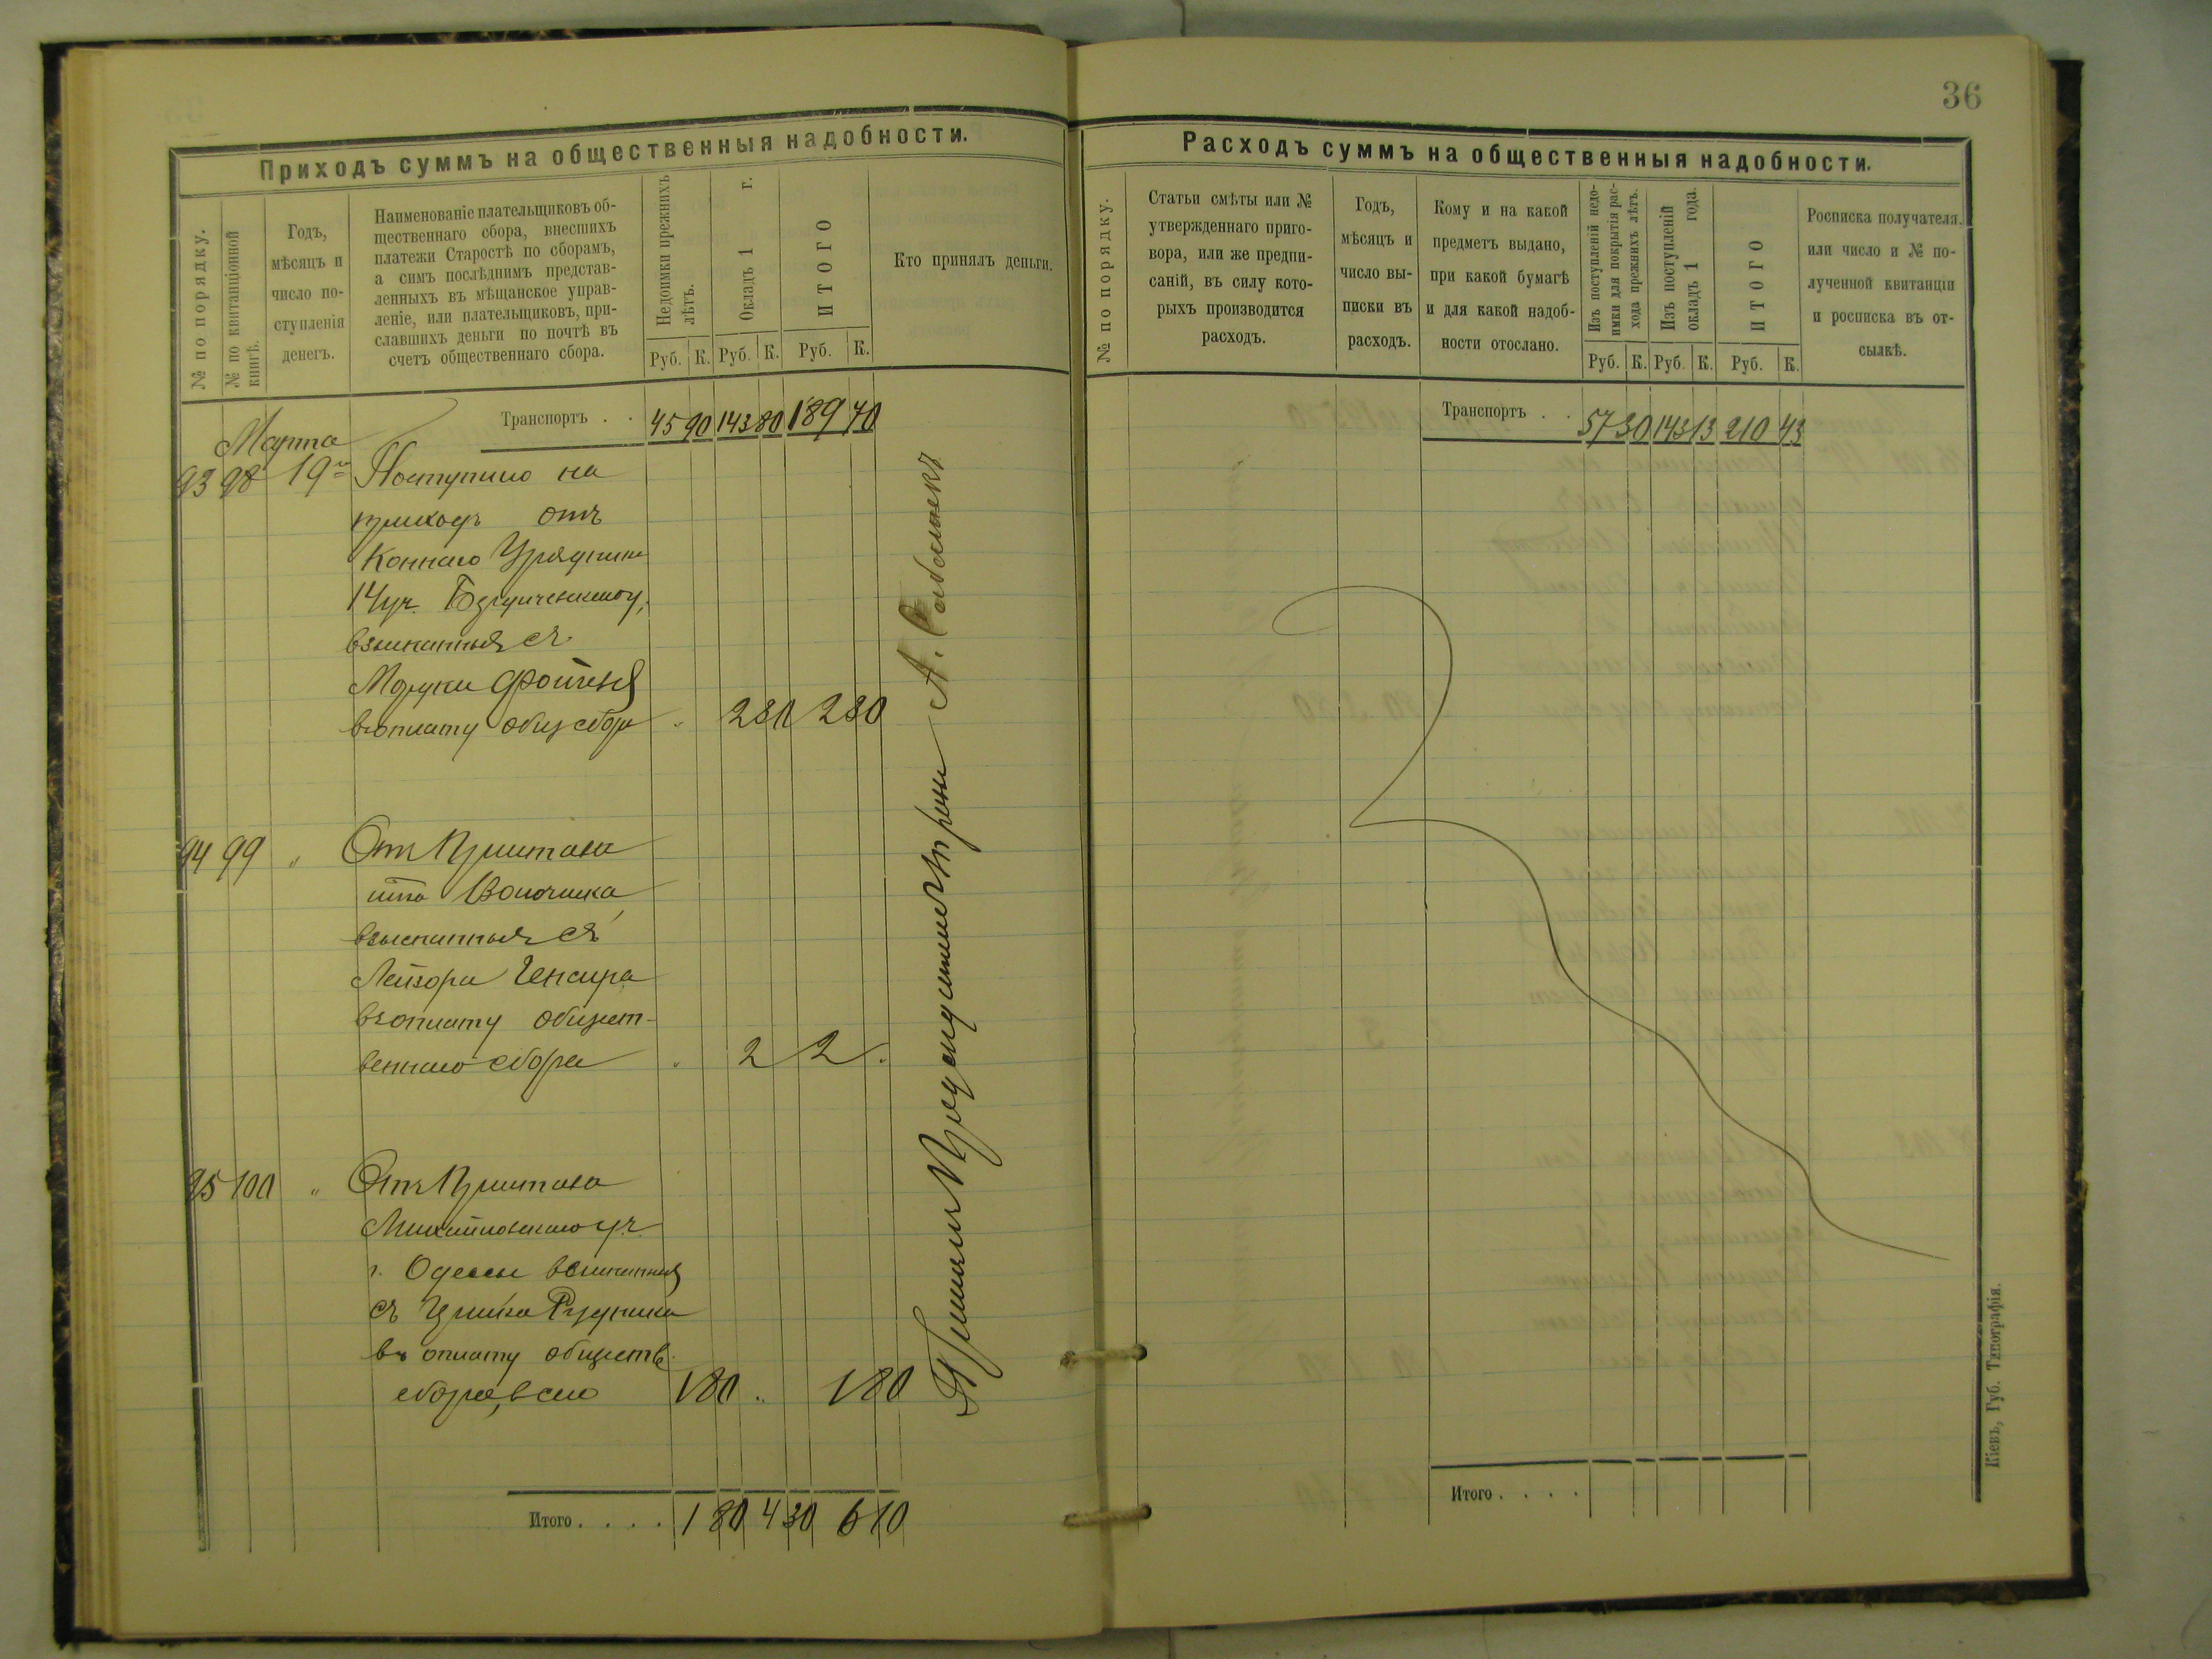 36
Приходъ суммъ на общественныя надобности.
№ по порядку.
№ по квитанціонной
книгѣ.
Годъ,
мѣсяцъ и
число по-
ступленія
денегъ.
Наименованіе плательщиковъ об-
щественнаго сбора, внесшихъ
платежи Старостѣ по сборамъ,
а симъ послѣднимъ представ-
ленныхъ въ мѣщанское управ-
леніе, или плательщиковъ, при-
славшихъ деньги по почтѣ въ
счетъ общественнаго сбора.
Недоимки прежнихъ
лѣтъ.
Окладъ 1 г.
ИТОГО
Руб. К. Руб. К. Руб. К.
Кто принялъ деньги.
Транспортъ . . 45 90 143 80 189 70
Марта
93 98 19го Поступило на
приходъ отъ
Коннаго Урядника
14 уч.
взысканныя съ
въ оплату общ сбора " 2 30 2 30
94 99 " Отъ Пристава
взысканныя съ
Лейзора
въ оплату общест-
веннаго сбора " 2 2 "
95 100 " Отъ Пристава
Михайловскаго уч.
г. Одессы взысканныя
съ Рудника
въ оплату обществ.
сбора, всего 1 80 " 1 80
Итого . . . . 1 80 4 30 6 10
А.
Расходъ суммъ на общественныя надобности.
№ по порядку.
Статьи смѣты или №
утвержденнаго приго-
вора, или же предпи-
саній, въ силу кото-
рыхъ производится
расходъ.
Годъ,
мѣсяцъ и
число вы-
писки въ
расходъ.
Кому и на какой
предметъ выдано,
при какой бумагѣ
и для какой надоб-
ности отослано.
Изъ поступленій недо-
имки для покрытія рас-
хода прежнихъ лѣтъ.
Изъ поступленій
окладъ 1 года.
ИТОГО
Руб. К. Руб. К. Руб. К.
Росписка получателя.
или число и № по-
лученной квитанціи
и росписка въ от-
сылкѣ.
Транспортъ . . 57 30 143 13 210 43
Итого . . . .
Кіевъ, Губ. Типографія.